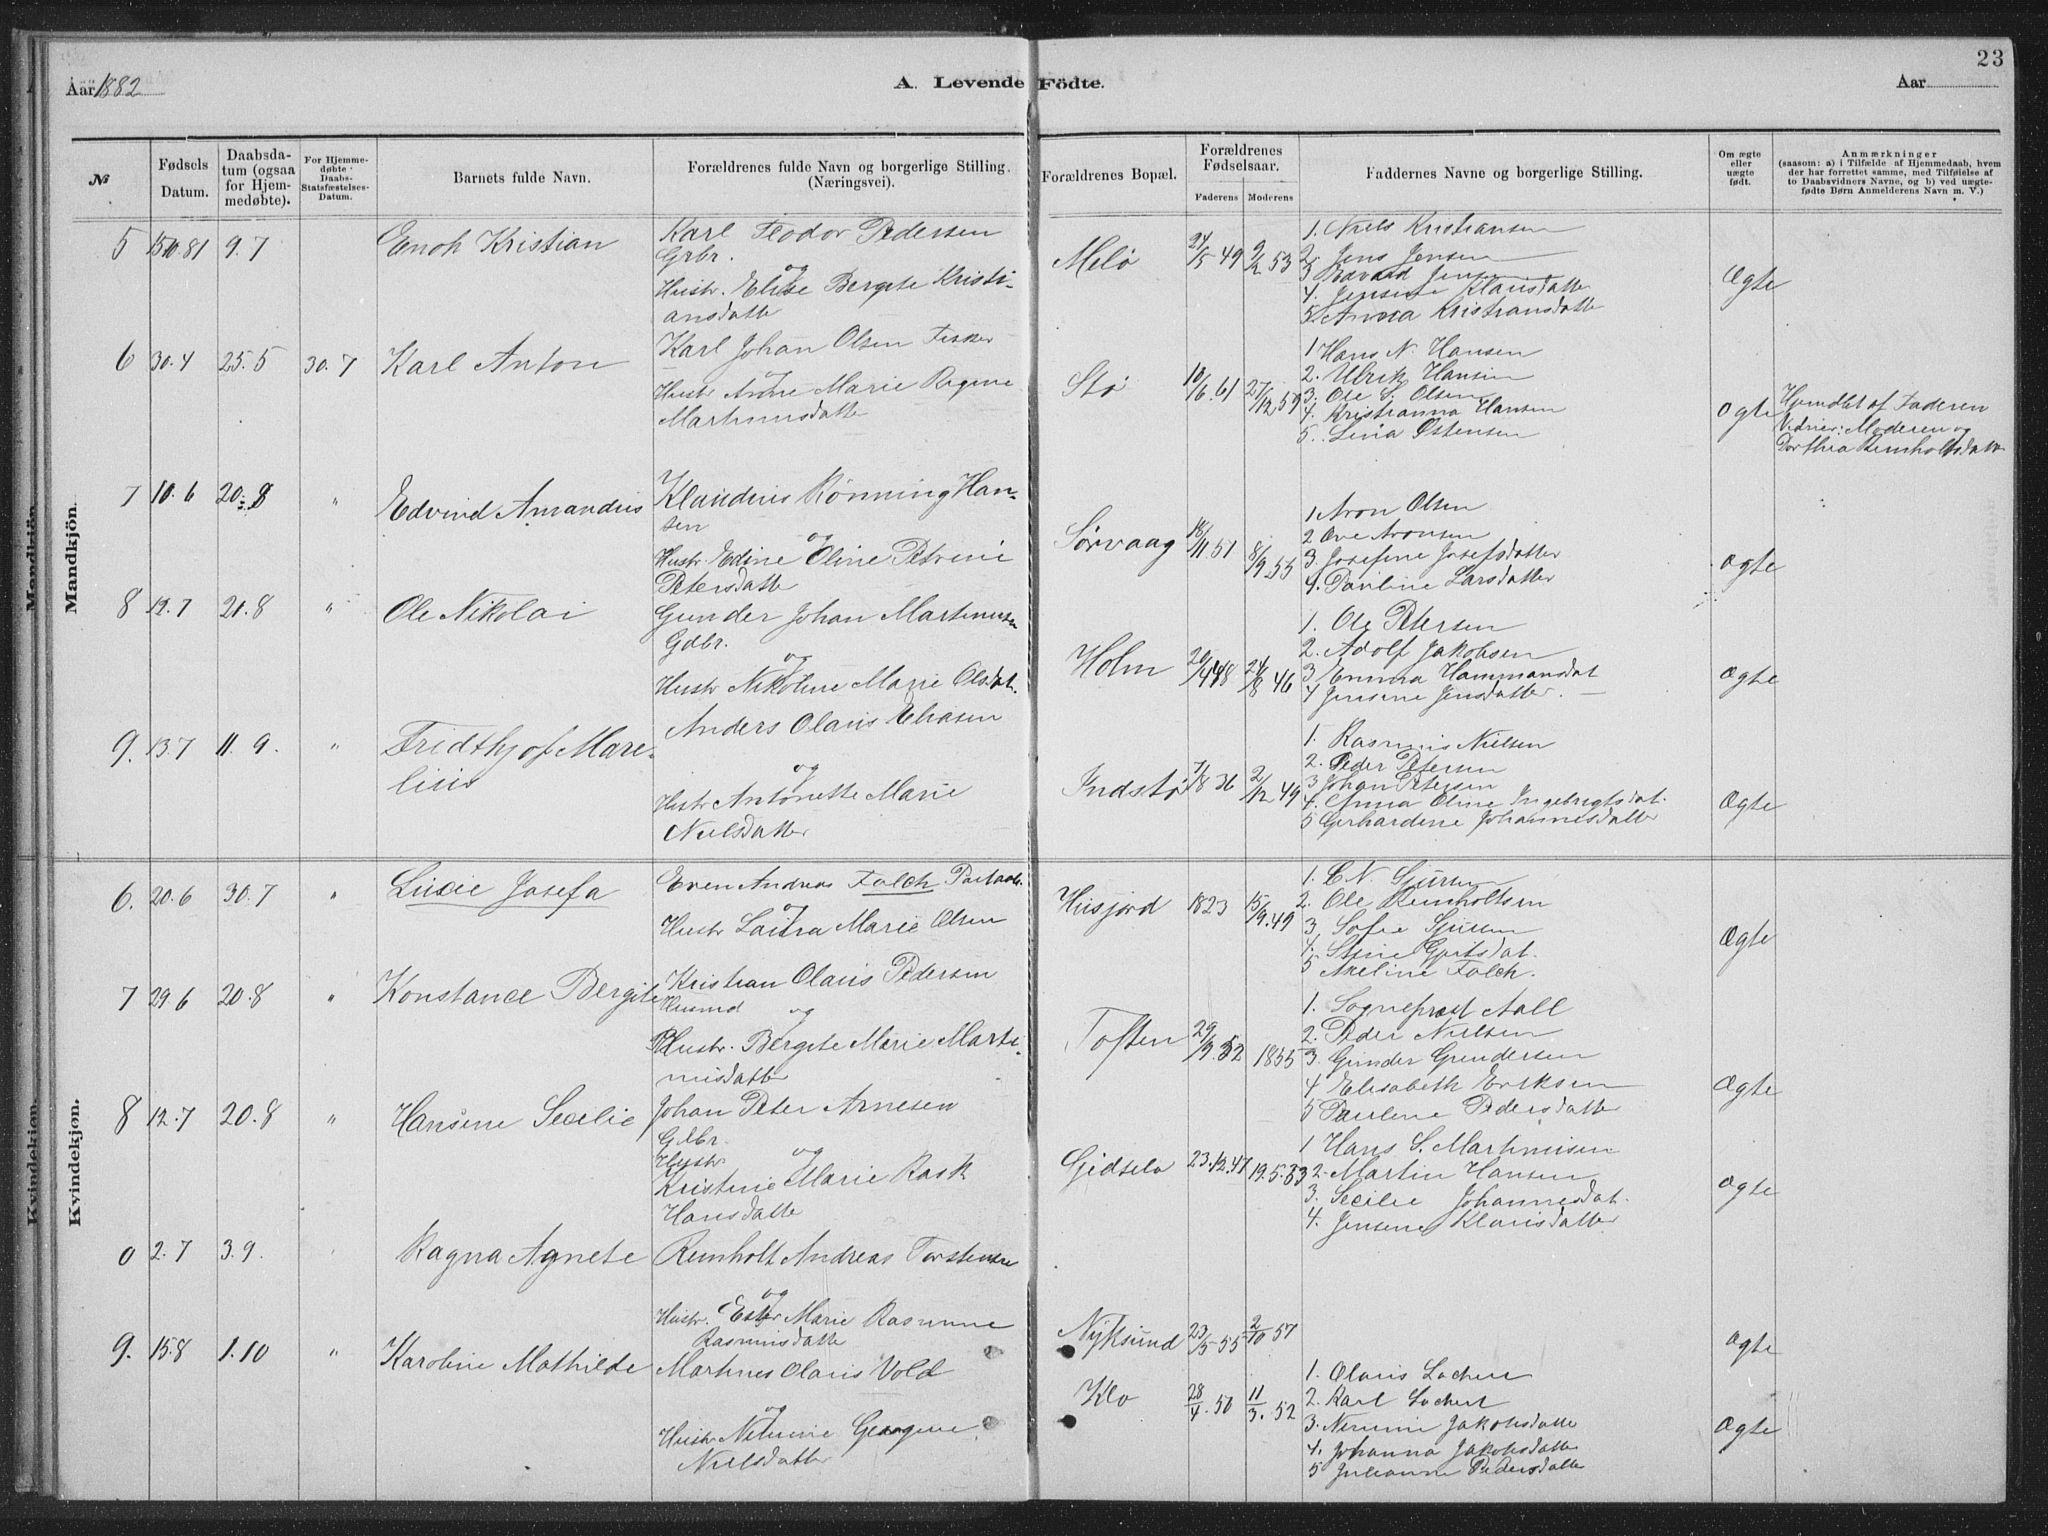 23
Aar 1882
A. Levende Födte.
Aar
№
Fødsels Datum.
Daabsdatum (ogsaa for Hjemmedøbte).
For Hjemmedøbte: Daabs-Statsfæstelses-Datum.
Barnets fulde Navn.
Forældrenes fulde Navn og borgerlige Stilling. (Næringsvei).
Forældrenes Bopæl.
Forældrenes Fødselsaar.
Faderens
Moderens
Faddernes Navne og borgerlige Stilling.
Om ægte eller uægte født.
Anmærkninger
(saasom: a) i Tilfælde af Hjemmedaab, hvem
der har forrettet samme, med Tilføielse af
to Daabsvidners Navne, og b) ved uægte-
fødte Børn Anmelderens Navn m. V.)
Mandkjön.
Mandkjön.
5 9.7 Enoh Kristian
Karl Teodor Pedersen
Grbr. og
Hustr. Elise Bergete Kristi-
ansdatte
Melö 24/5 49 9/2 53
1. Niels Kristiansen
2. Jens Jensen
3 Edvard Jensen
4. Jensine Klausdatte
5. Anna Kristiansdatte
Ægte
6 30.4 25.5 30.7 Karl Anton
Karl Johan Olsen Fisker
og
Hustr Anne Marie Regine
Martinusdatte
Stö 10/6.61 27/12 59
1 Hans N. Hansen
2. Ulrik Hansen
3. Ole S. Olsen
4. Kristianna Hansen
5. Lina Østensen
Ogte
Hjemdbt af Faderen
Vidner: Moderen og
Dorthea Reinholtsdatte
7 10.6 20.8 " Edvind Amandus
Klaudius Rönning Han-
sen og
Hustr. Edine Oline Petrine
Petersdatte
Sörvaag 16/11 51 8/9.55
1 Aron Olsen
2 Ove Aronsen
3 Josefine Josefsdatter
4. Pauline Larsdatter
Ogte
8 12.7 20.8 " Ole Nikolai
Gunder Johan Martinusen
Gdbr. og
Hustr Nikoline Marie Olsdat.
Holm 20/4 48 24/8 46
1. Ole Petersen
2. Adolf Jakobsen
3 Emma Hammansdat
4 Jensine Jensdatter.
Ægte
9. 13.7 11 9. " Fridthjof Mare-
lius
Anders Olaus Eliasen
og
Hustr Antonette Marie
Nielsdatter
Indstö 7/8 36 2/12 49
1. Rasmus Nielsen
2. Peder Petersen
3 Johan Petersen
4. Anna Oline Ingebrigtsdat.
5 Gerhardine Johannesdatter
Ægte
Kvindekjön.
Kvindekjön.
6. 20.6 30.7 " Lucie Josefa
Even Andreas Falch
og
Hustr Laura Marie Olsen
Husjord 1823 15/9.49
1. C N. Sjursen
2. Ole Reinholtsen
3 Sofie Sjursen
4. Stine Gjertsdat.
5 Akeline Falch.
Ægte
7 29 6 20.8 " Konstance Bergite
Kristian Olaus Pedersen
Husmd og
Hustr. Bergete Marie Marti-
nusdatte
Toften 29/9.52 1855
1. Sogneprest Aall
2. Peder Nielsen
3. Gunder Gundersen
4 Elisabeth Eriksen
5 Pauline Pedersdatter
Ægte
8 12.7 20.8 " Hansine Secilie
Johan Peter Arnesen
Gdbr. og
Hustr
Kristine Marie Rask
Hansdatte
Gjidselo 23.12.47 19.5.53
1 Hans S. Martinusen
2. Martin Hansen
3. Secilie Johannesdat.
4. Jensine Klausdatter
Ogte
0 2.7 3.9. Ragna Agnete
Reinholt Andreas Torstensen
og
Hustr. Ester Marie Rasmine
Rasmusdatte
Nyksund 23/5 55 2/10 57
Ogte
9. 15.8 1.10 " Karoline Mathilde
Martines Olaus Vold
og
Hustr Nelmine Georgine
Nielsdatter
Klo 28/4.50 11/3.52
1. Olaus Lochert
2. Karl Lochert
3. Nimine Jakobsdatte
4. Johanna Jakobsdatte
5 Julianne Pedersdatte
Ægte